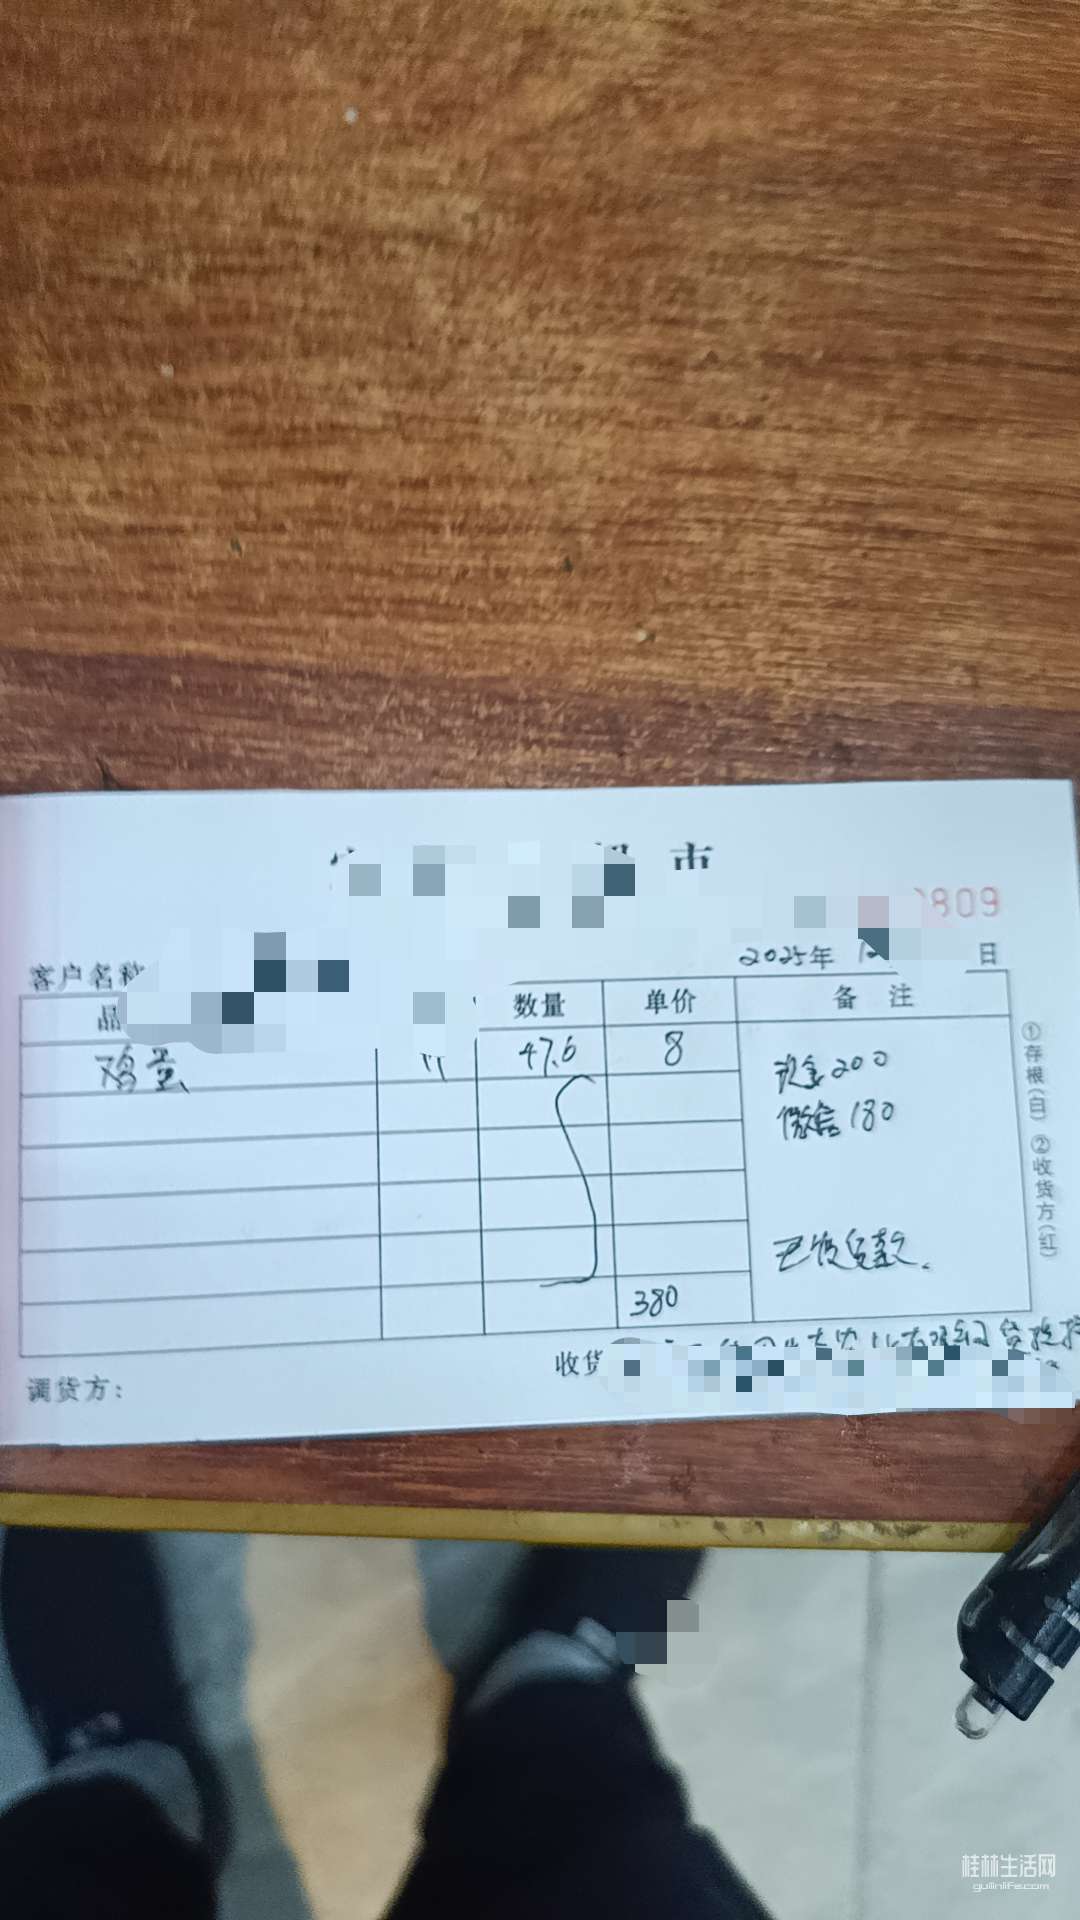 市
809
客户名称
2025年 12 日
品 数量 单价 备 注
鸡蛋 47.6 8
现金200
微信180
已收货款.
380
收货
调货方：
①存根(自) ②收货方(红)
桂林生活网
guilinlife.com